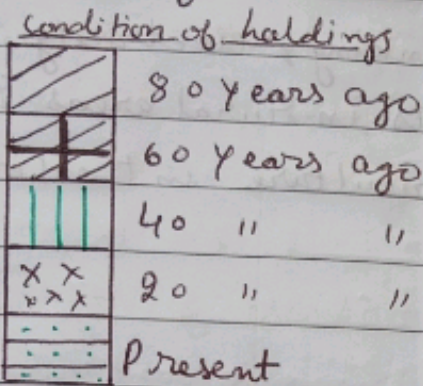 condition of holdings
80 Years ago
60 Years ago
40 " "
20 " "
Present